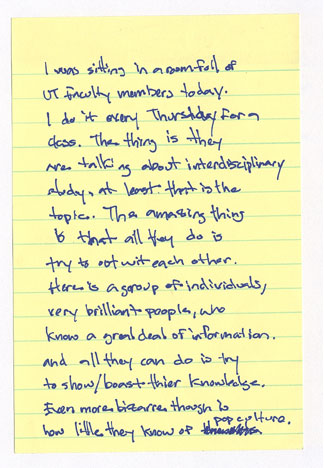 I was sitting in a room full of
UT faculty members today.
I do it every Thursday for a
class. The thing is they
are talking about interdisciplinary
study, at least that is the
topic. The amazing thing
is that all they do is
try to out wit each other.
Here is a group of individuals,
very brilliant people, who
know a great deal of information.
and all they can do is try
to show/boast thier knowledge.
Even more bizarre though is
how little they know of pop culture.